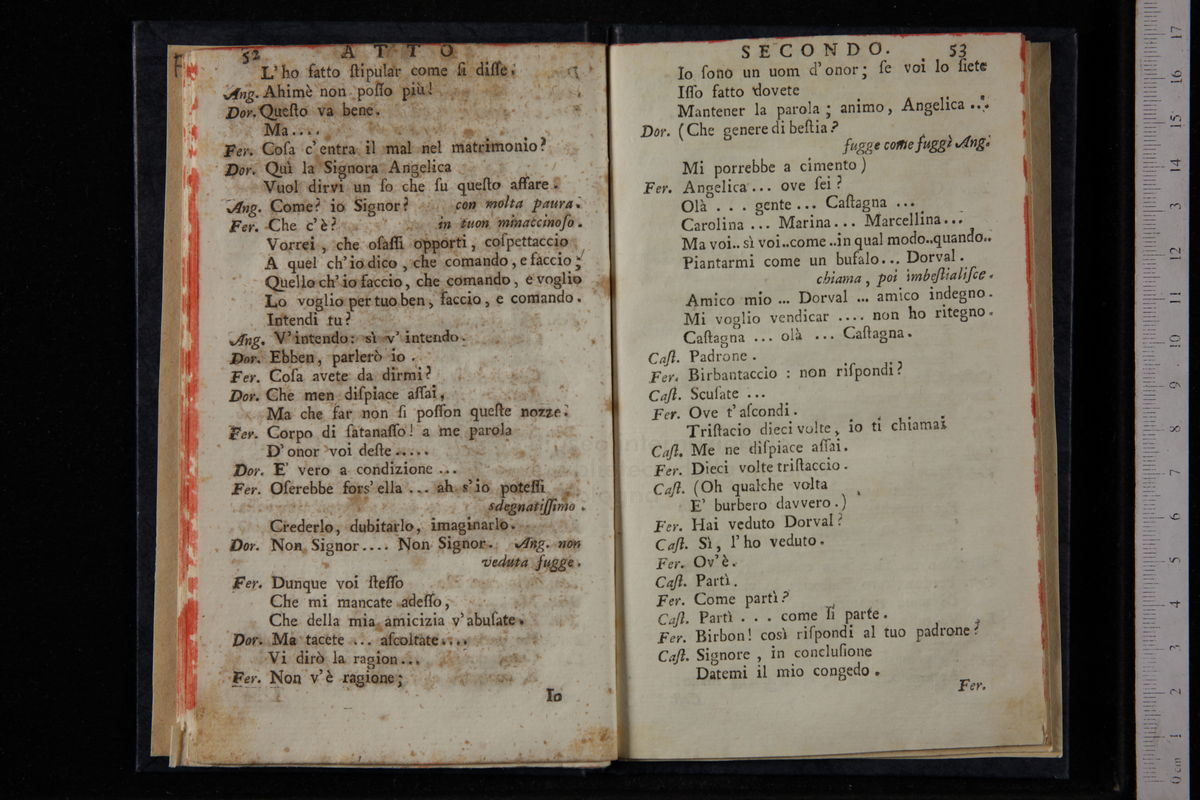 52 ATTO
L'ho fatto ſtipular come ſi diſſe.
Ang. Ahimè non poſſo più!
Dor. Queſto va bene.
Ma....
Fer. Coſa c'entra il mal nel matrimonio?
Dor. Quì la Signora Angelica
Vuol dirvi un ſo che ſu queſto affare.
Ang. Come? io Signor? con molta paura.
Fer. Che c'è? in tuon minaccinoſo.
Vorrei, che oſaſſi opporti, coſpettaccio
A quel ch'io dico, che comando, e faccio;
Quello ch'io faccio, che comando, e voglio
Lo voglio per tuo ben, faccio, e comando.
Intendi tu?
Ang. V'intendo: sì v'intendo.
Dor. Ebben, parlerò io.
Fer. Coſa avete da dirmi?
Dor. Che men diſpiace aſſai,
Ma che far non ſi poſſon queſte nozze.
Fer. Corpo di ſatanaſſo! a me parola
D'onor voi deſte.....
Dor. E' vero a condizione...
Fer. Oſerebbe fors'ella... ah s'io poteſſi
sdegnatiſſimo.
Crederlo, dubitarlo, imaginarlo.
Dor. Non Signor.... Non Signor. Ang. non
veduta fugge.
Fer. Dunque voi ſteſſo
Che mi mancate adeſſo,
Che della mia amicizia v'abuſate.
Dor. Ma tacete... aſcoltate....
Vi dirò la ragion...
Fer. Non v'è ragione;
Io
SECONDO. 53
Io ſono un uom d'onor; ſe voi lo ſiete
Iſſo fatto dovete
Mantener la parola; animo, Angelica...
Dor. (Che genere di beſtia?
fugge come fuggì Ang.
Mi porrebbe a cimento)
Fer. Angelica... ove ſei?
Olà... gente... Caſtagna...
Carolina... Marina... Marcellina...
Ma voi.. sì voi..come..in qual modo..quando..
Piantarmi come un bufalo... Dorval.
chiama, poi imbeſtialiſce.
Amico mio... Dorval... amico indegno.
Mi voglio vendicar.... non ho ritegno.
Caſtagna... olà... Caſtagna.
Caſt. Padrone.
Fer. Birbantaccio: non riſpondi?
Caſt. Scuſate...
Fer. Ove t'aſcondi.
Triſtacio dieci volte, io ti chiamai
Caſt. Me ne diſpiace aſſai.
Fer. Dieci volte triſtaccio.
Caſt. (Oh qualche volta
E' burbero davvero.)
Fer. Hai veduto Dorval?
Caſt. Sì, l'ho veduto.
Fer. Ov'è.
Caſt. Partì.
Fer. Come partì?
Caſt. Partì... come ſi parte.
Fer. Birbon! così riſpondi al tuo padrone?
Caſt. Signore, in concluſione
Datemi il mio congedo.
Fer.